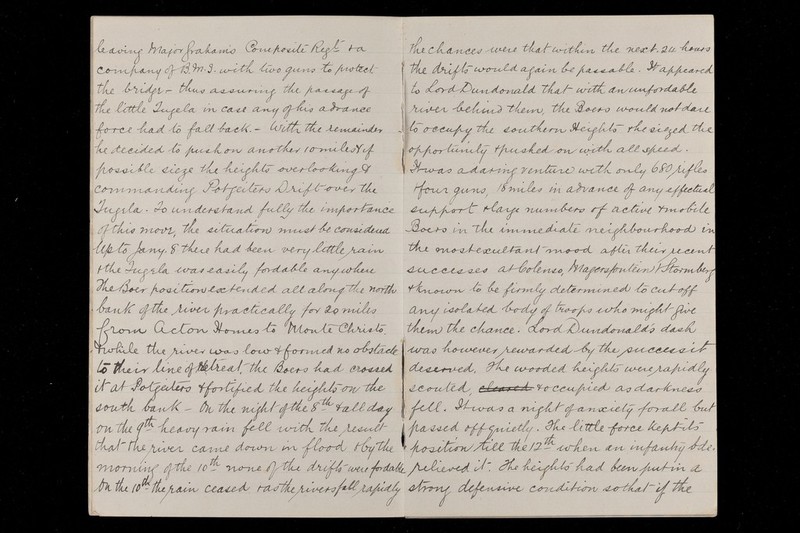 leaving Major Grahams Composite Regt. & a
company of B.M.I. with two guns to protect
the bridge - thus assuring the passage of
the little Tugela in case any of his advance
force had to fall back. - With the remainder
he decided to push on another 10 miles & if
possible sieze the heights overlooking &
commanding Potgeiters Drift over the
Tugela. To understand fully the importance
of this move, the situation must be considered
Up to Jany. 8 there had been very little rain
& the Tugela was easily fordable anywhere
The Boer position extended all along the north
bank of the river practically for 20 miles
from Acton Homes to Monte Christo.
& while the river was low & formed no obstacle
to their line of Retreat the Boers had crossed
it at Potgeiters & fortified the heights on the
south bank - On the night of the 8th & all day
on the 9th heavy rain fell with the result
that the river came down in flood & by the
morning of the 10th none of the drifts were fordable
On the 10th the rain ceased & as the rivers fall rapidly
the chances were that within the next 24 hours
the drifts would again be passable. It appeared
to Lord Dundonald that with an unfordable
river behind them, the Boers would not dare
to occupy the southern Heights & he siezed the
opportunity & pushed on with all speed.
It was a daring venture with only 680 rifles
& four guns, 18 miles in advance of any effectual
support & large numbers of active & mobile
Boers in the immediate neighbourhood in
the most exultant mood after their recent
successes at Colenso, Magersfontein & Stormberg
& known to be firmly determined to cut off
any isolated body of troops who might give
them the chance. Lord Dundonald's dash
was however rewarded by the success it
deserved. The wooded heights were rapidly
scouted, cleared & occupied as darkness
fell. It was a night of anxiety for all but
passed off quietly. The little force kept its
position till the 12th when an infantry bde.
relieved it. The heights had been put in a
strong defensive condition so that if the